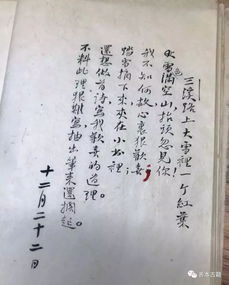 三溪路上大雪裡一个紅葉
雪色滿空山，抬頭忽見你！
我不知何故，心裏狠歡喜；
踏雪摘下來，夾在小書裡；
還想做首詩，寫我歡喜的道理。
不料此理狠難寫，抽出筆來還擱起。
十二月二十二日
善本古籍